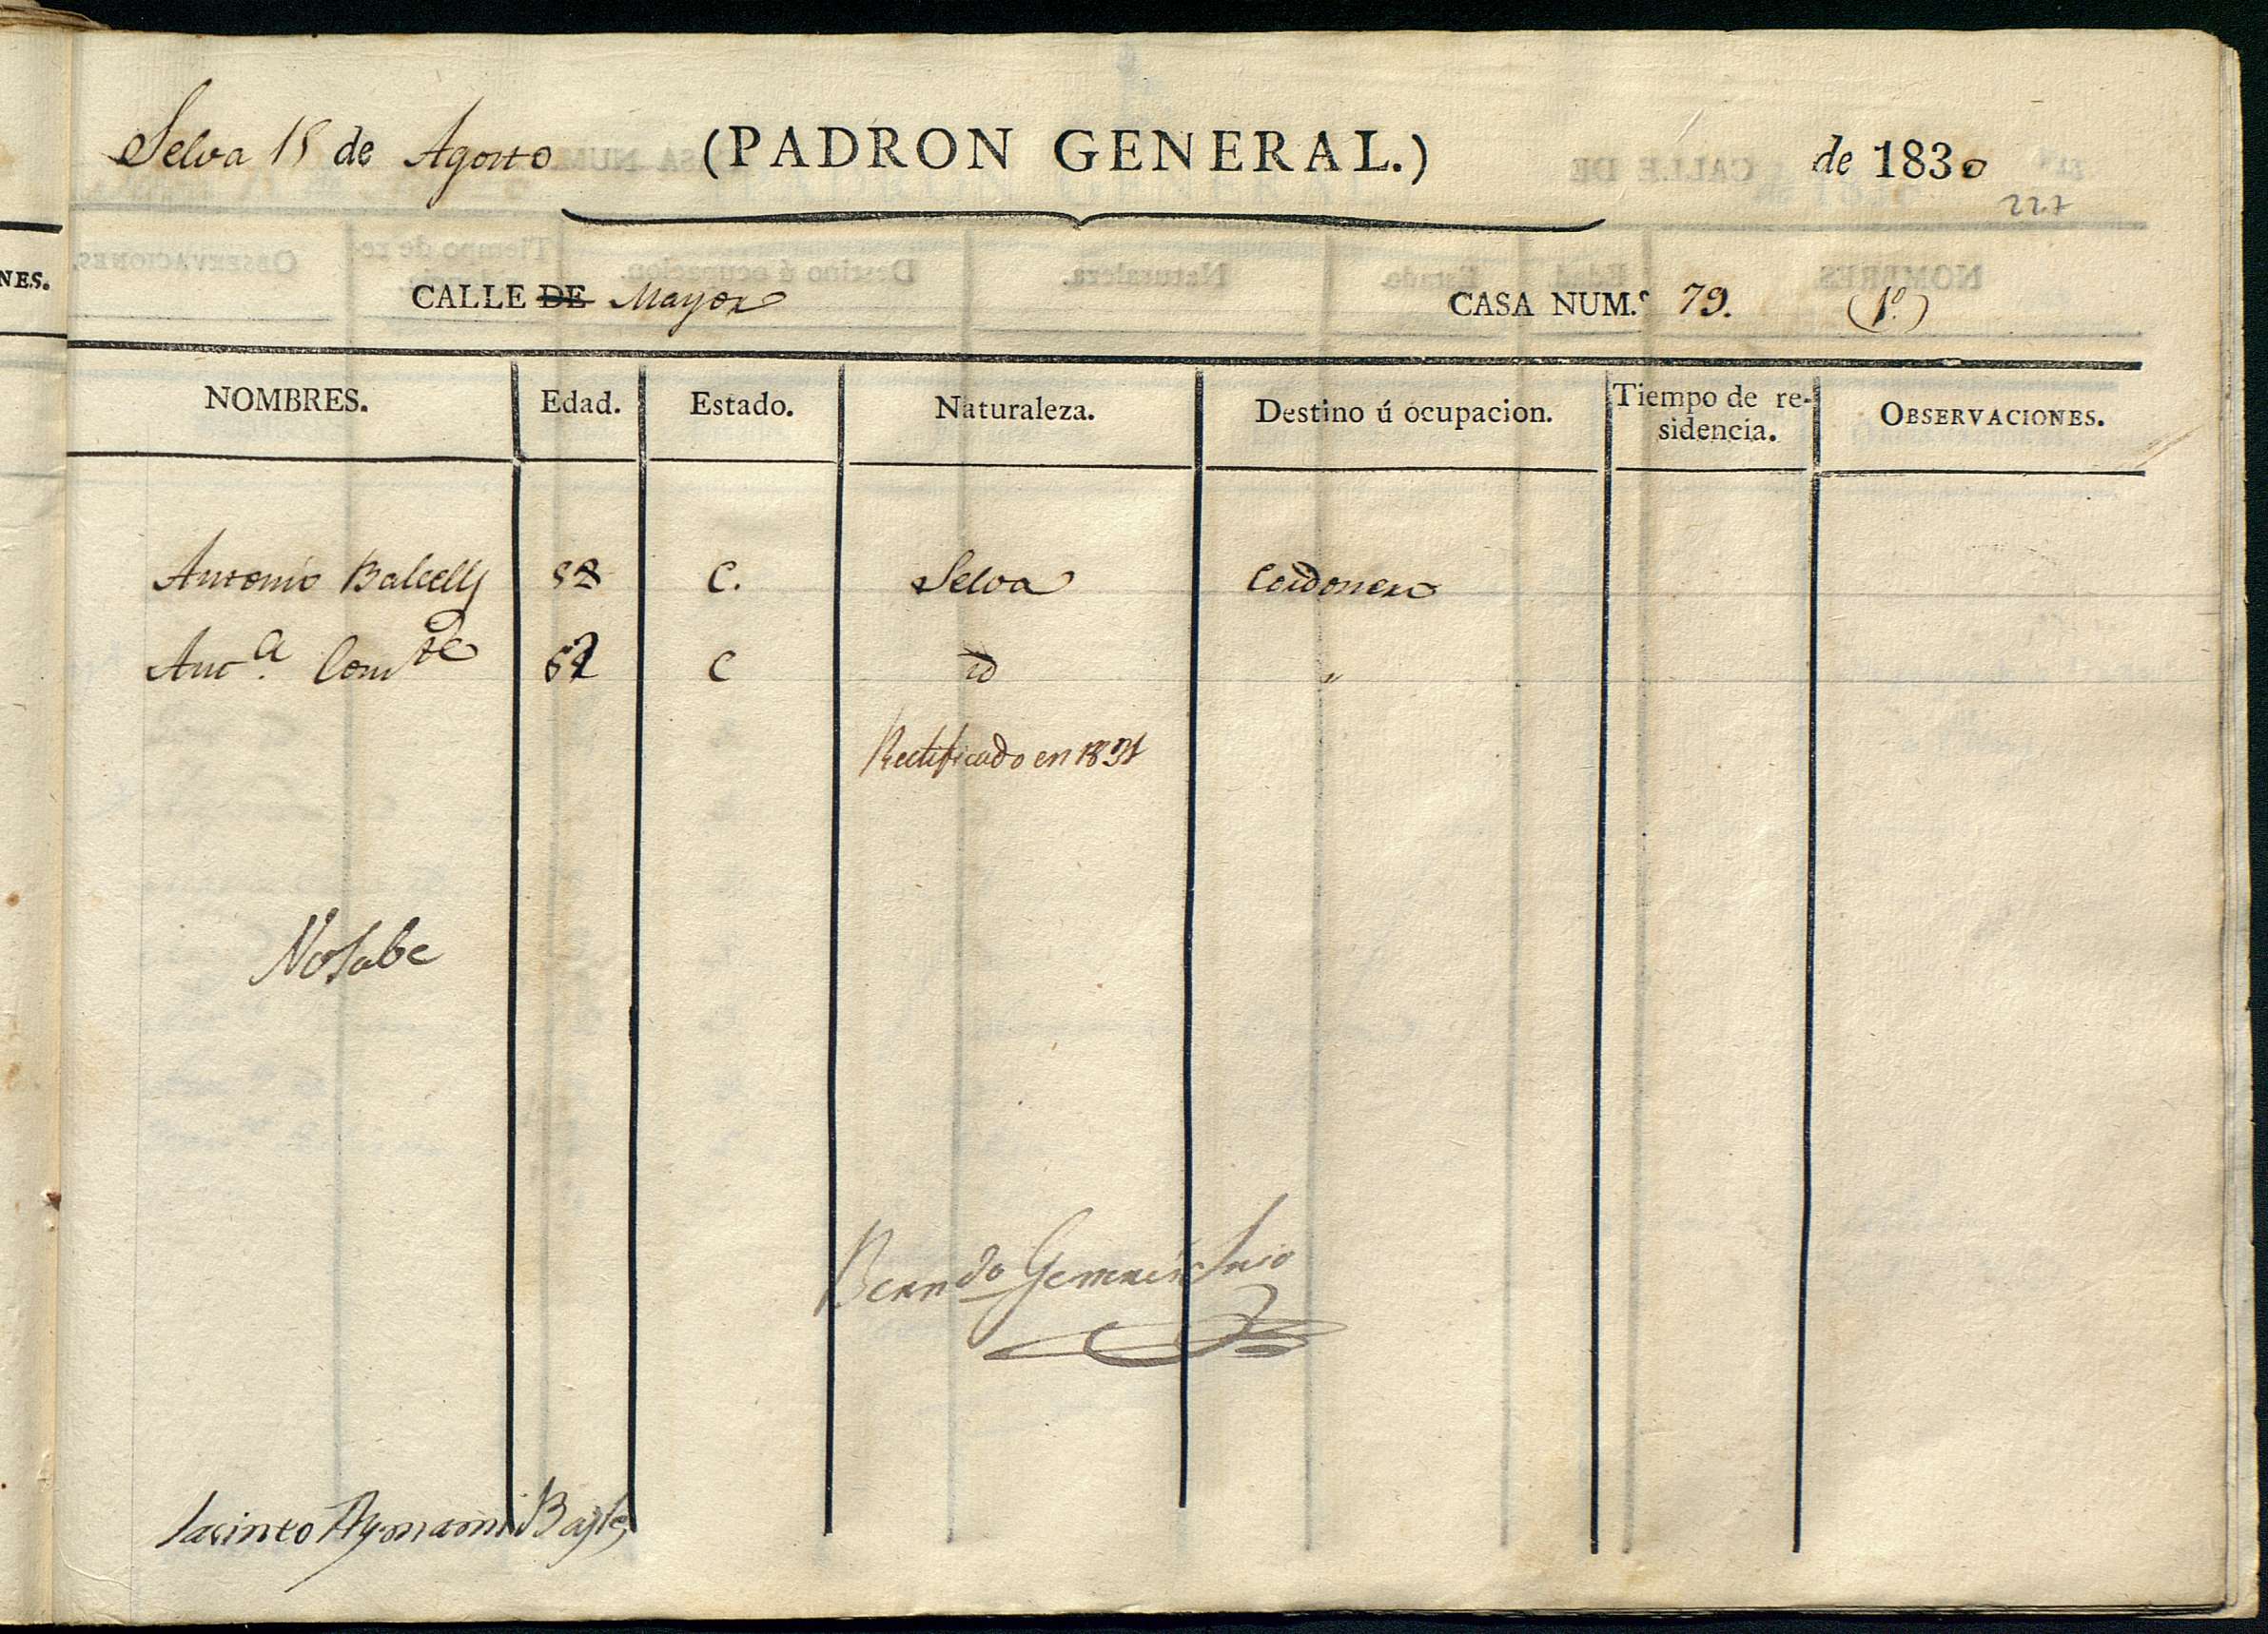 Selva 15 de Agosto (PADRON GENERAL.) de 1830
227
CALLE DE Mayor CASA NUM.º 79. (1º)
NOMBRES. Edad. Estado. Naturaleza. Destino ú ocupacion. Tiempo de re-
sidencia. OBSERVACIONES.
Antonio Balcells C. Selva Cordonero
Ant.ª Comte C id "
Rectificado en 1831
No Sabe
Berndo Srio
Jacinto Aymami Bayle
NES.